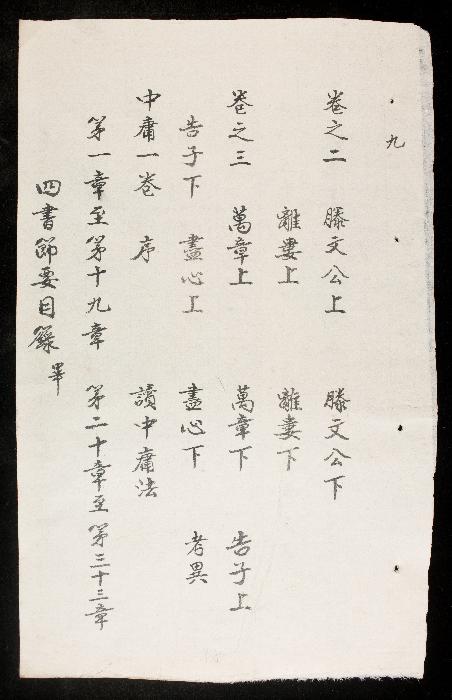 九
卷之二 滕文公上 滕文公下
離婁上 離婁下
卷之三 萬章上 萬章下 告子上
告子下 盡心上 盡心下 考異
中庸一卷 序 讀中庸法
第一章至第十九章 第二十章至第三十三章
四書節要目錄畢